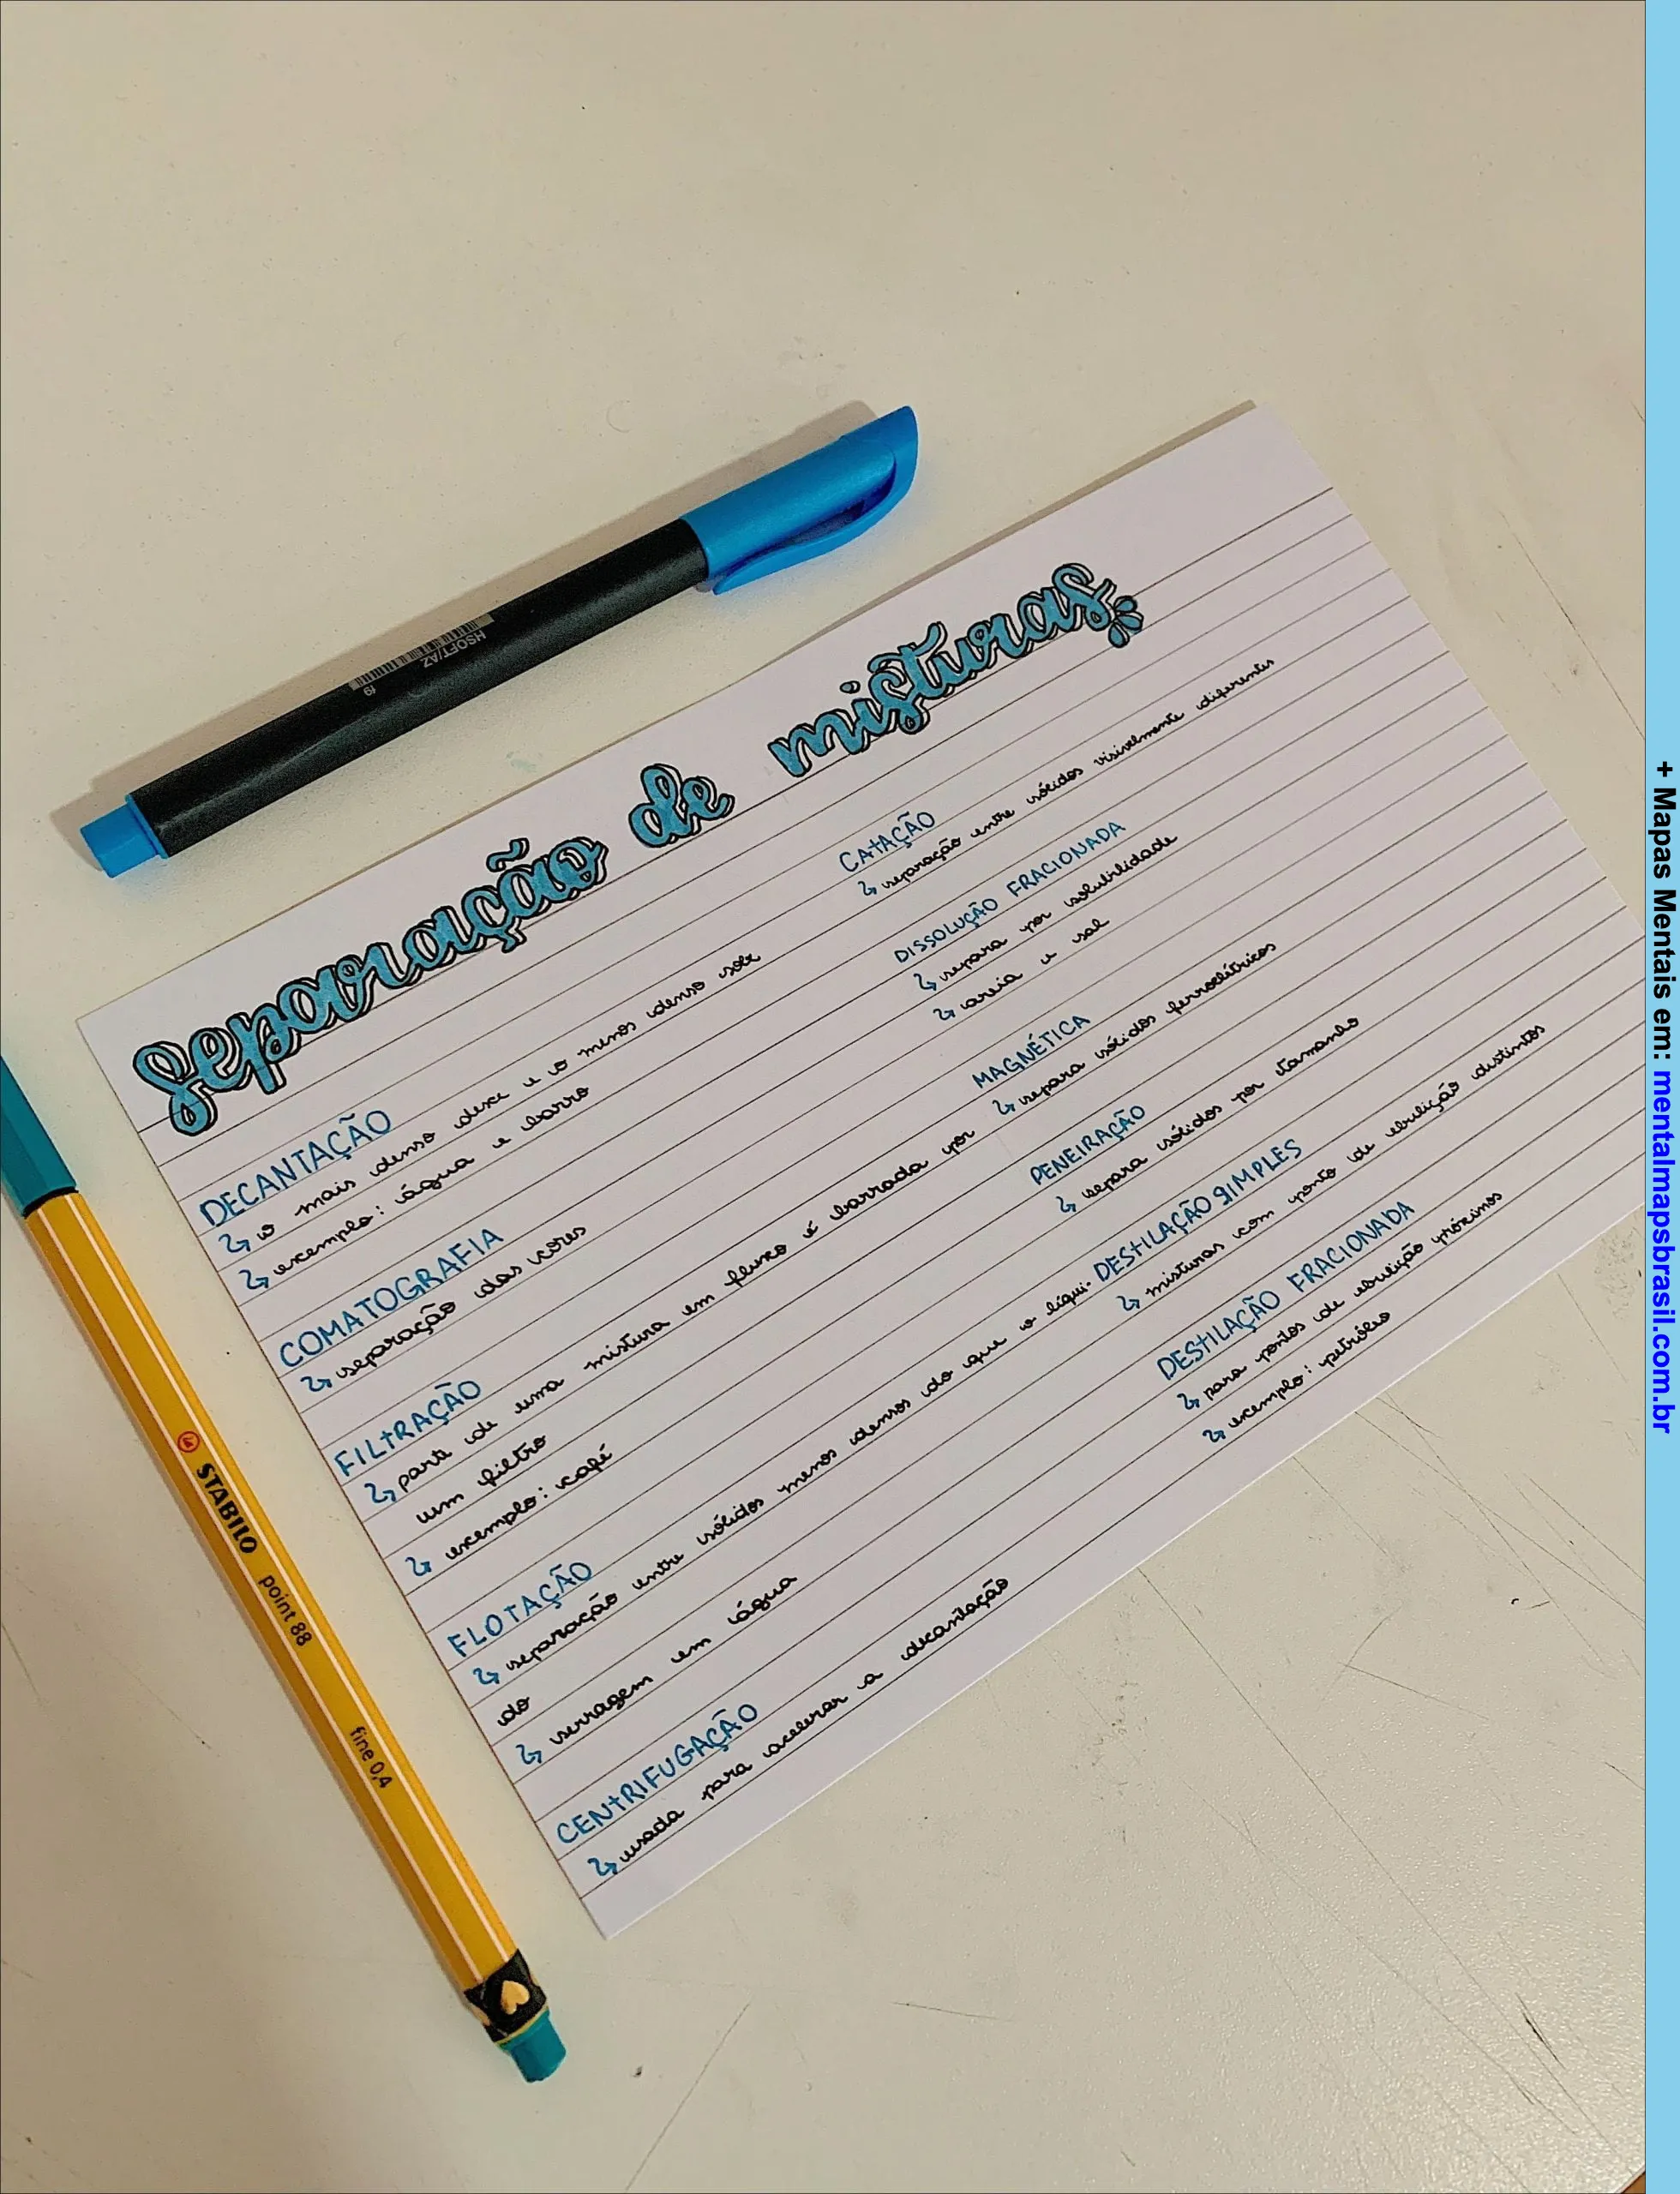 separação de misturas
DECANTAÇÃO
↳ o mais denso desce e o menos denso sobe
↳ exemplo: água e barro
COMATOGRAFIA
↳ separação das cores
FILTRAÇÃO
↳ parte de uma mistura em fluxo é barrada por
um filtro
↳ exemplo: café
FLOTAÇÃO
↳ separação entre sólidos menos densos do que o líqui-
do
↳ serragem em água
CENTRIFUGAÇÃO
↳ usada para acelerar a decantação
CATAÇÃO
↳ separação entre sólidos visivelmente diferentes
DISSOLUÇÃO FRACIONADA
↳ separa por solubilidade
↳ areia e sal
MAGNÉTICA
↳ separa sólidos
PENEIRAÇÃO
↳ separa sólidos por tamanho
DESTILAÇÃO SIMPLES
↳ misturas com ponto de ebulição distintos
DESTILAÇÃO FRACIONADA
↳ para pontos de ebulição próximos
↳ exemplo: petróleo
HSOFT/AZ
STABILO point 88 fine 0,4
+ Mapas Mentais em: mentalmapsbrasil.com.br